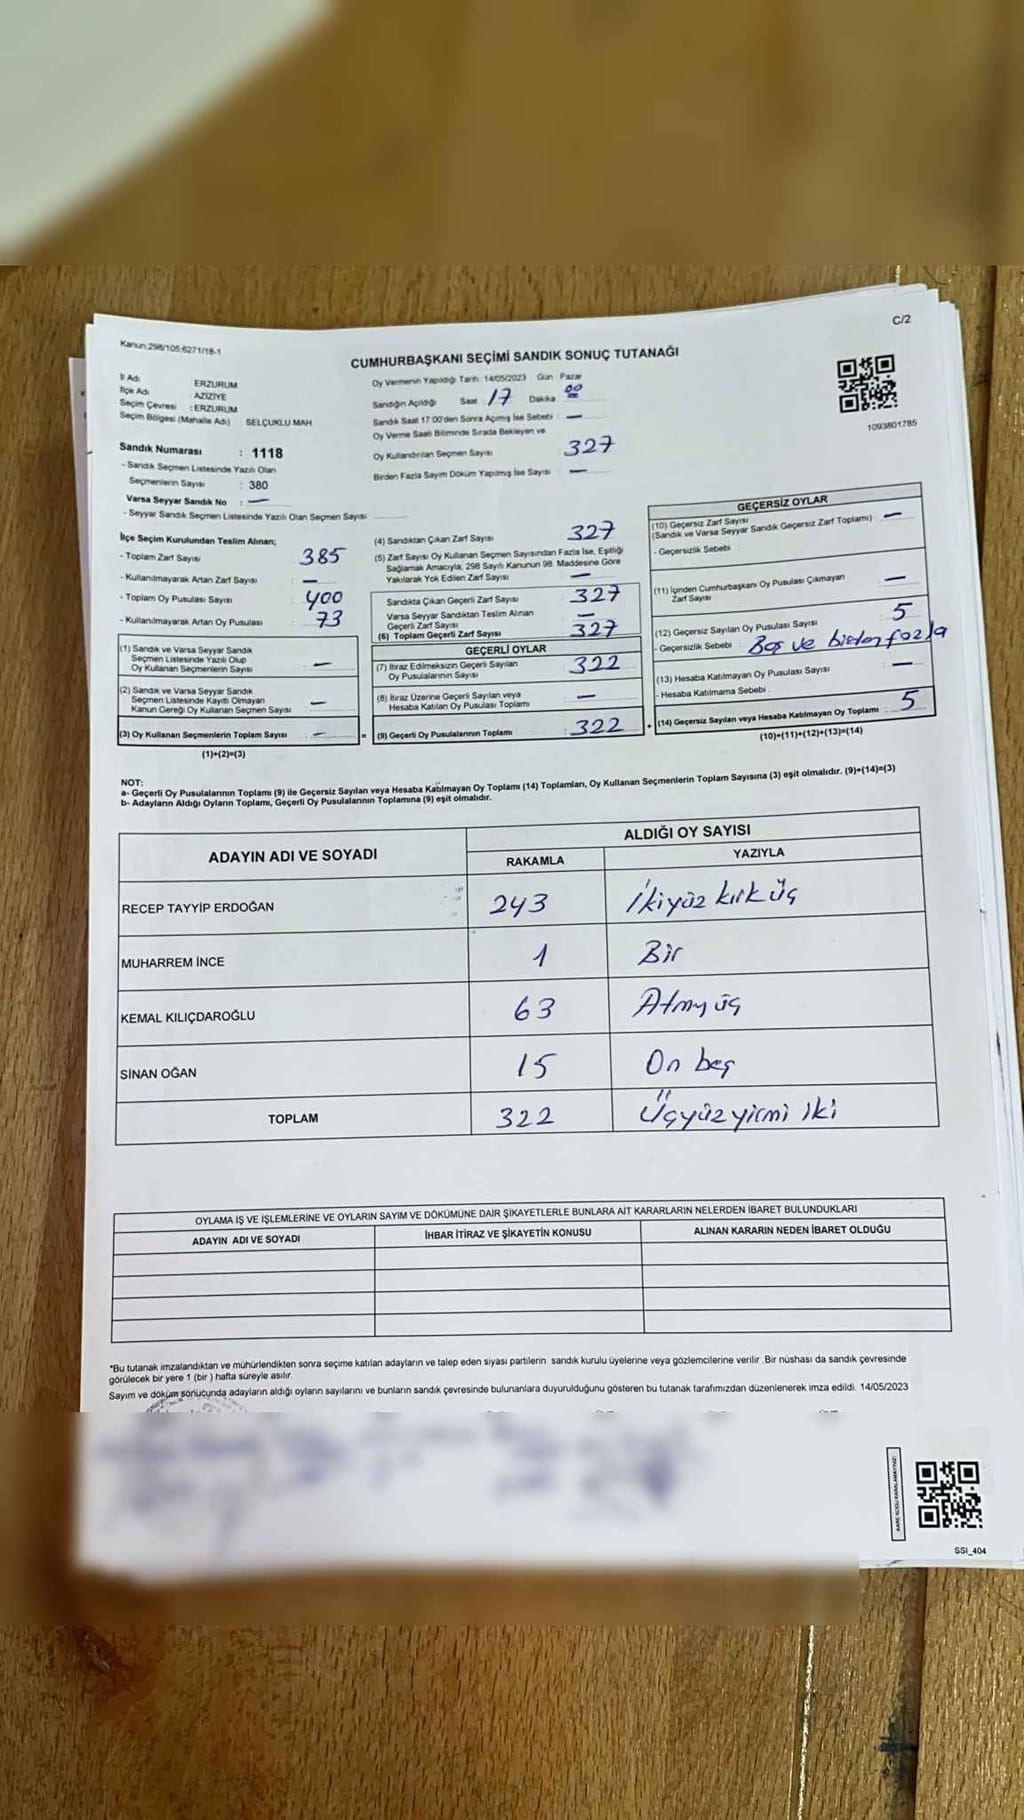 C/2
Kanun:298/105,6271/18-1
CUMHURBAŞKANI SEÇİMİ SANDIK SONUÇ TUTANAĞI
İl Adı ERZURUM
İlçe Adı AZİZİYE
Seçim Çevresi : ERZURUM
Seçim Bölgesi (Mahalle Adı) SELÇUKLU MAH.
Sandık Numarası : 1118
- Sandık Seçmen Listesinde Yazılı Olan
Seçmenlerin Sayısı : 380
Varsa Seyyar Sandık No : —
- Seyyar Sandık Seçmen Listesinde Yazılı Olan Seçmen Sayısı
Oy Vermenin Yapıldığı Tarih : 14/05/2023 Gün : Pazar
Sandığın Açıldığı Saat 17 Dakika 00
Sandık Saat 17:00'den Sonra Açılmış İse Sebebi : —
Oy Verme Saati Bitiminde Sırada Bekleyen ve
Oy Kullandırılan Seçmen Sayısı 327
Birden Fazla Sayım Döküm Yapılmış İse Sayısı : —
1093801785
İlçe Seçim Kurulundan Teslim Alınan;
- Toplam Zarf Sayısı 385
- Kullanılmayarak Artan Zarf Sayısı : —
- Toplam Oy Pusulası Sayısı : 400
- Kullanılmayarak Artan Oy Pusulası : 73
(1) Sandık ve Varsa Seyyar Sandık
Seçmen Listesinde Yazılı Olup
Oy Kullanan Seçmenlerin Sayısı : —
(2) Sandık ve Varsa Seyyar Sandık
Seçmen Listesinde Kayıtlı Olmayan
Kanun Gereği Oy Kullanan Seçmen Sayısı : —
(3) Oy Kullanan Seçmenlerin Toplam Sayısı : —
(1)+(2)=(3)
(4) Sandıktan Çıkan Zarf Sayısı 327
(5) Zarf Sayısı Oy Kullanan Seçmen Sayısından Fazla İse, Eşitliği
Sağlamak Amacıyla; 298 Sayılı Kanunun 98. Maddesine Göre
Yakılarak Yok Edilen Zarf Sayısı : —
Sandıkta Çıkan Geçerli Zarf Sayısı : 327
Varsa Seyyar Sandıktan Teslim Alınan
Geçerli Zarf Sayısı : —
(6) Toplam Geçerli Zarf Sayısı : 327
GEÇERLİ OYLAR
(7) İtiraz Edilmeksizin Geçerli Sayılan
Oy Pusulalarının Sayısı : 322
(8) İtiraz Üzerine Geçerli Sayılan veya
Hesaba Katılan Oy Pusulası Toplamı : —
= (9) Geçerli Oy Pusulalarının Toplamı : 322
GEÇERSİZ OYLAR
(10) Geçersiz Zarf Sayısı
(Sandık ve Varsa Seyyar Sandık Geçersiz Zarf Toplamı) : —
- Geçersizlik Sebebi :
(11) İçinden Cumhurbaşkanı Oy Pusulası Çıkmayan
Zarf Sayısı : —
(12) Geçersiz Sayılan Oy Pusulası Sayısı : 5
- Geçersizlik Sebebi : Boş ve birden fazla
(13) Hesaba Katılmayan Oy Pusulası Sayısı : —
- Hesaba Katılmama Sebebi :
+ (14) Geçersiz Sayılan veya Hesaba Katılmayan Oy Toplamı : 5
(10)+(11)+(12)+(13)=(14)
NOT:
a- Geçerli Oy Pusulalarının Toplamı (9) ile Geçersiz Sayılan veya Hesaba Katılmayan Oy Toplamı (14) Toplamları, Oy Kullanan Seçmenlerin Toplam Sayısına (3) eşit olmalıdır. (9)+(14)=(3)
b- Adayların Aldığı Oyların Toplamı, Geçerli Oy Pusulalarının Toplamına (9) eşit olmalıdır.
ADAYIN ADI VE SOYADI ALDIĞI OY SAYISI
RAKAMLA YAZIYLA
RECEP TAYYİP ERDOĞAN 243 İkiyüz kırk üç
MUHARREM İNCE 1 Bir
KEMAL KILIÇDAROĞLU 63 Atmış üç
SİNAN OĞAN 15 On beş
TOPLAM 322 Üçyüz yirmi iki
OYLAMA İŞ VE İŞLEMLERİNE VE OYLARIN SAYIM VE DÖKÜMÜNE DAİR ŞİKAYETLERLE BUNLARA AİT KARARLARIN NELERDEN İBARET BULUNDUKLARI
ADAYIN ADI VE SOYADI İHBAR İTİRAZ VE ŞİKAYETİN KONUSU ALINAN KARARIN NEDEN İBARET OLDUĞU
*Bu tutanak imzalandıktan ve mühürlendikten sonra seçime katılan adayların ve talep eden siyasi partilerin sandık kurulu üyelerine veya gözlemcilerine verilir .Bir nüshası da sandık çevresinde
görülecek bir yere 1 (bir ) hafta süreyle asılır.
Sayım ve döküm sonucunda adayların aldığı oyların sayılarını ve bunların sandık çevresinde bulunanlara duyurulduğunu gösteren bu tutanak tarafımızdan düzenlenerek imza edildi. 14/05/2023
SSI_404